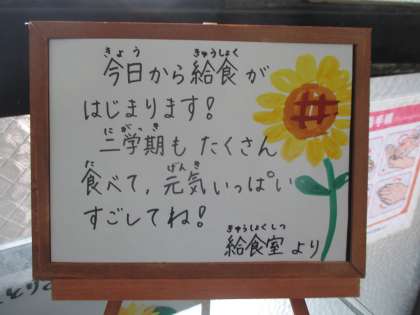 きょう きゅうしょく
今日から給食が
はじまります!
にがっき
二学期も たくさん
た げんき
食べて、元気いっぱい
すごしてね!
きゅうしょくしつ
給食室より